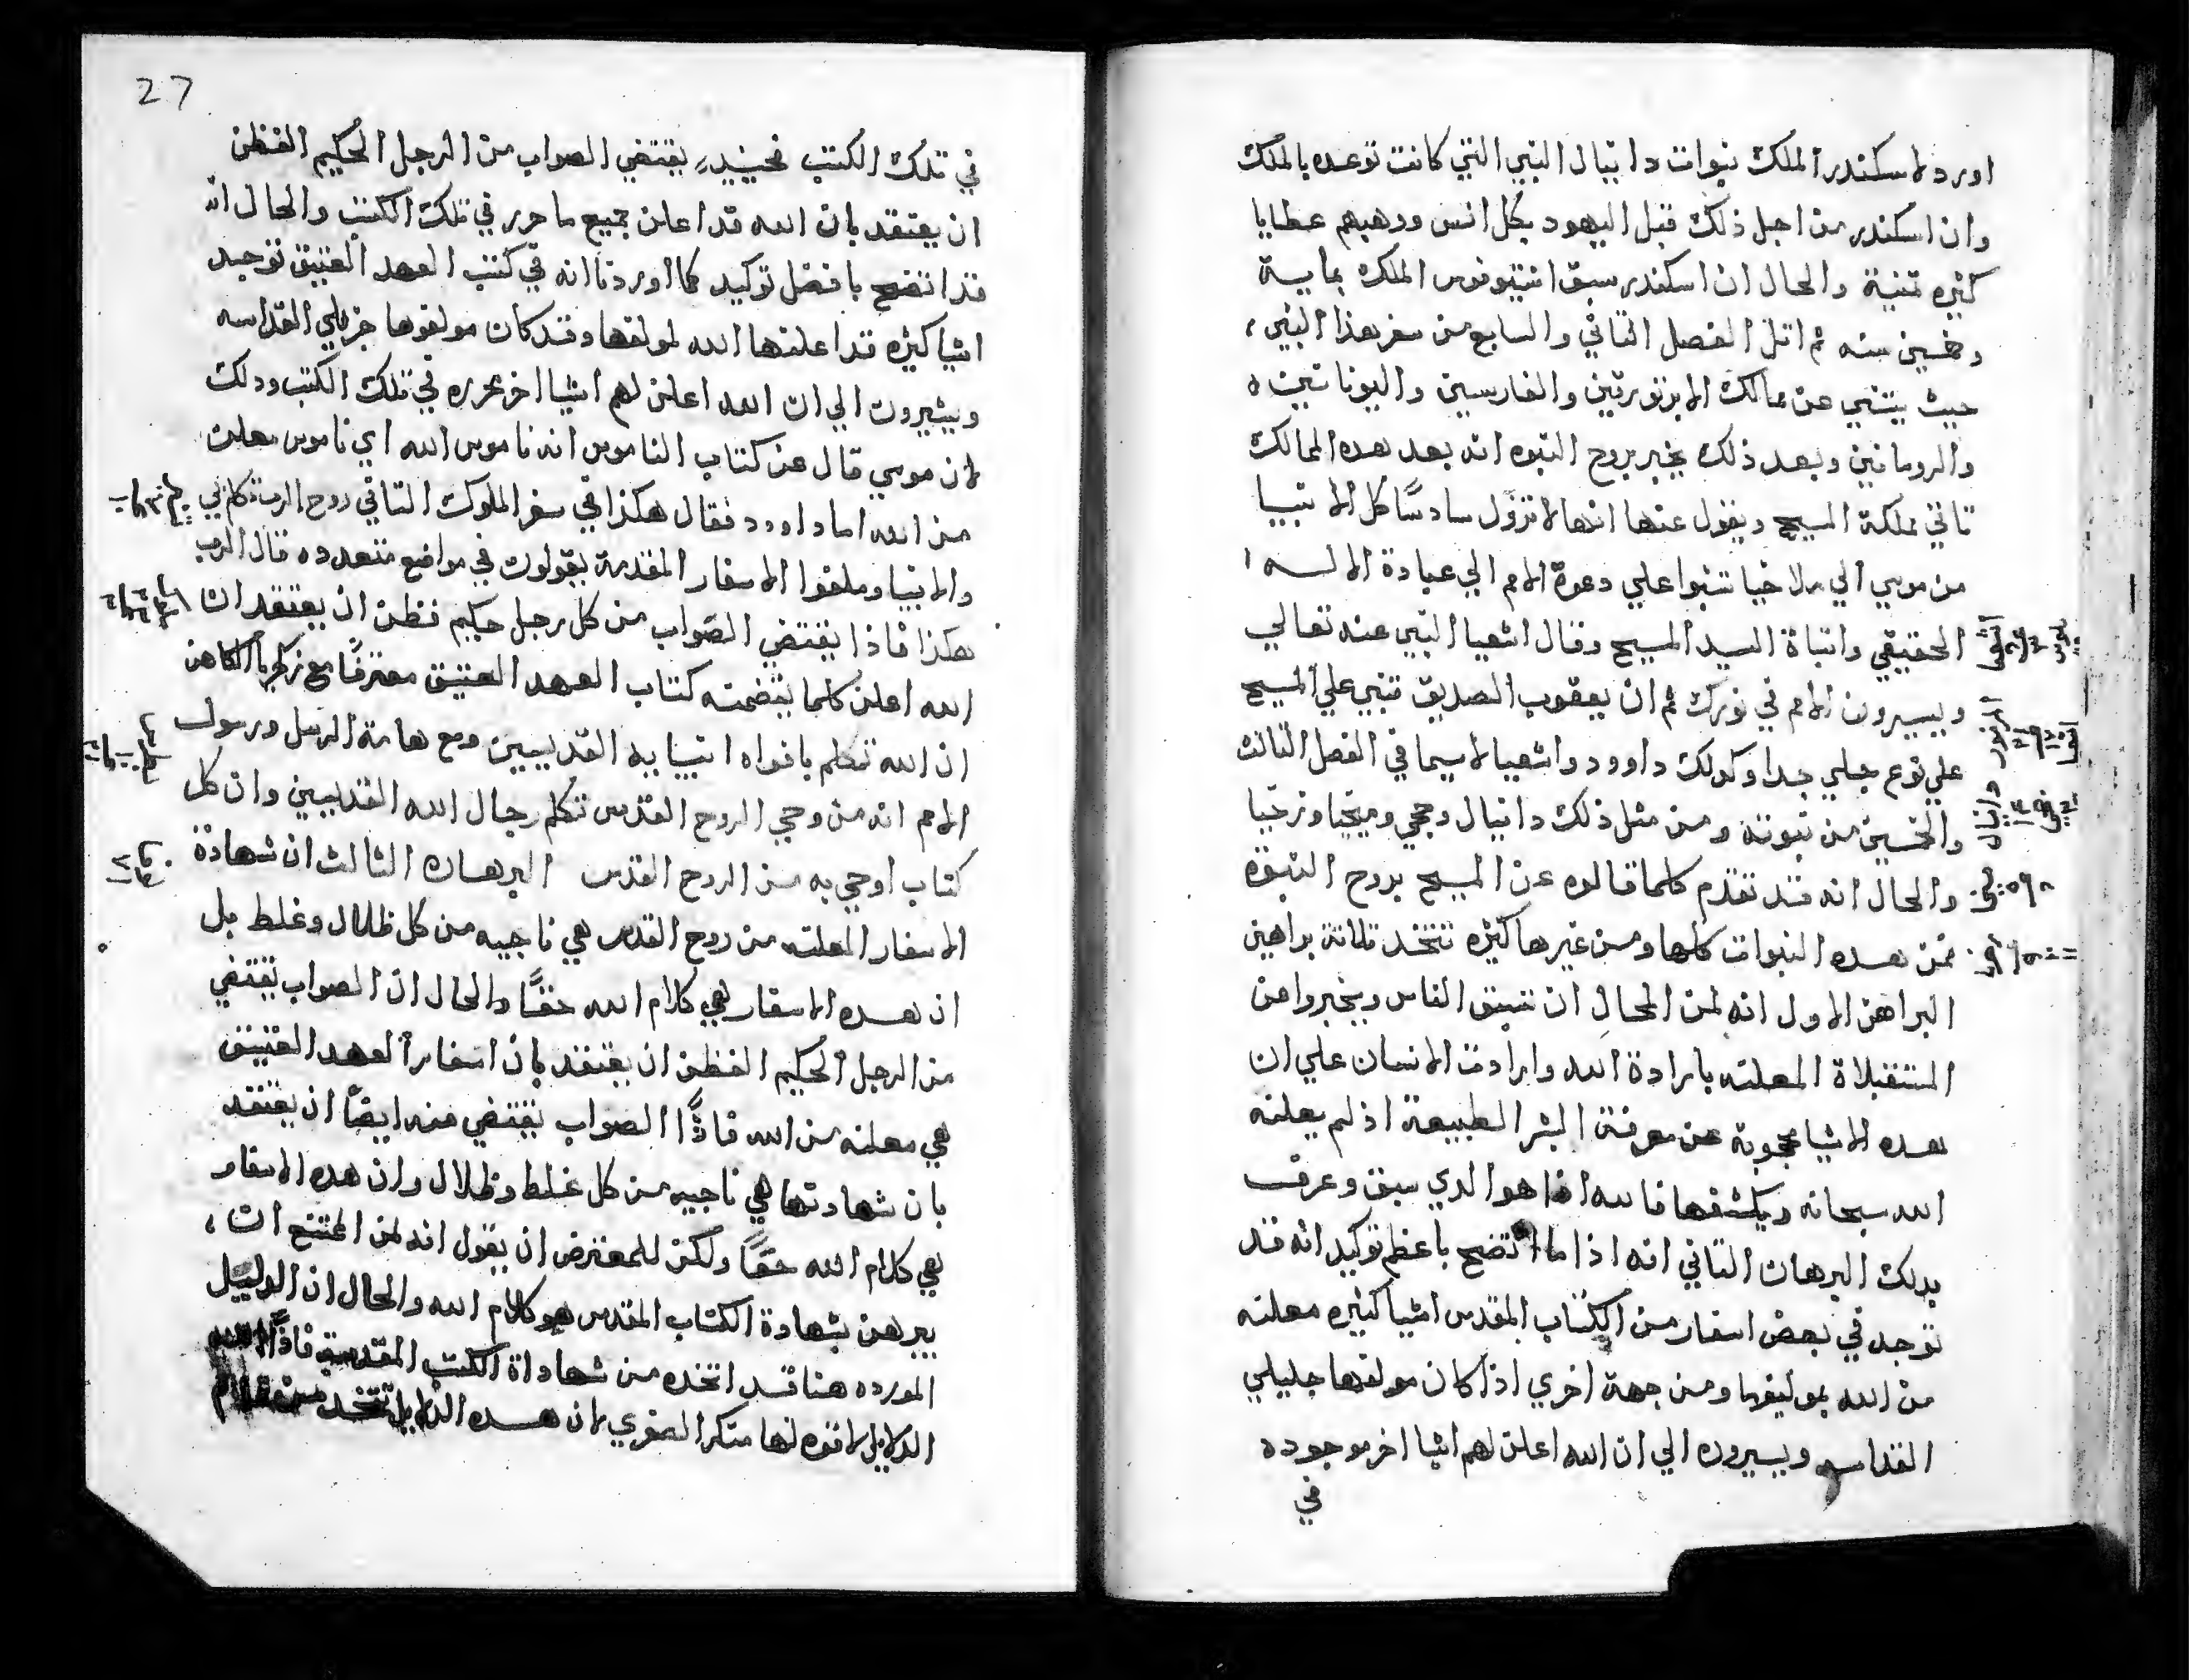 اورد لاسكندر الملك نبوات دانيال النبي التي كانت توعده بالملك
وان اسكندر من اجل ذلك قبل اليهود بكل انس ووهبهم عطايا
كثيره ثمنية والحال ان اسكندر سبق انتيوخوس الملك بماية
وخمسين سنه ثم اتل الفصل الثاني والسابع من سفر هذا النبي
حيث يتنبي عن ممالك والفارسيين واليونانيين
والرومانين وبعد ذلك يخبر بروح النبوه انه بعد هده الممالك
تاتي مملكة المسيح ويقول عنها انها لا تزول سادسًا كل الانبيا
من موسي الي ملاخيا تنبوا علي دعوة الامم الي عبادة الاله
الحقيقي واتباة السيد المسيح وقال اشعيا النبي عنه تعالي
ويسيرون الامم في نورك ثم ان يعقوب الصديق تنبي علي المسيح
علي نوع جلي جدا وكدلك داوود واشعيا لاسيما في الفصل الثالث
والخمسين من نبوته ومن مثل ذلك دانيال وحجي وميخيا وزخيا
والحال انه قد تقدم كلما قالوه عن المسيح بروح النبوة
فمن هده النبوات كلها ومن غيرها كثيره نتخد ثلاثة براهين
البراهن الاول انه لمن المحال ان تتبق الناس ويخبروا عن
المستقبلاة المعلنه بارادة الله وارادت الانسان علي ان
هده الاشيا محجوبة عن معرفة البشر الطبيعة اذ لم يعلنه
الله سبحانه ويكشفها فالله اذا هو الدي سبق وعرف
بدلك البرهان الثاني انه اذا ما اتضح باعظم توكيد انه قد
توجد في بعض اسفار من الكتاب المقدس اشيا كثيره معلنه
من الله بموليفها ومن جهة اخري اذا كان مولفها جليلي
القداسه ويسيروه الي ان الله اعلن لهم اشيا اخر موجوده
في
27
في تلك الكتب فحينيدٍ يقتضي الصواب من الرجل الحكيم الفظن
ان يعتقد بان الله قد اعلن جميع ما حرر في تلك الكتب والحال انه
قد اتضح بافضل توكيد كما اوردنا انه في كتب العهد العتيق توجد
اشيا كثيره قد اعلنها الله لمولفها وقد كان مولفوها جزيلي القداسه
ويشيرون الي ان الله اعلن لهم اشيا اخر محرره في تلك الكتب ودلك
لان موسي قال عن كتاب الناموس انه ناموس الله اي ناموس معلن
من الله اما داوود فقال هكذا في سفر الملوك الثاني روح الرب كلم بي
والانبيا وملفوا الاسفار المقدسة يقولون في مواضع متعدده قال الرب
هكذا فاذا يقتضي الصواب من كل رجل حكيم فظن ان يعتقد ان
الله اعلن كلما يتضمنه كتاب العهد العتيق معترفًا مع زكريا الكاهن
ان الله تكلم بافواه انبيايه القديسين ومع هامة الرسل ورسول
الامم انه من وحي الروح القدس تكلم رجال الله القديسين وان كل
كتاب اوحي به من الروح القدس البرهان الثالث ان شهادة
الاسفار المعلنه من روح القدس هي ناجيه من كل ظلال وغلط بل
ان هده الاسفار هي كلام الله حقًا والحال ان الصواب يقتضي
من الرجل الحكيم الفظن ان يعتقد بان اسفار العهد العتيق
هي معلنه من الله فاذًا الصواب يقتضي منه ايضًا ان يعتقد
بان شهادتها هي ناجيه من كل غلط وظلال وان هده الاسفار
هي كلام الله حقًا ولكن للمعترض ان يقول انه لمن الممتنع ان
يبرهن بشهادة الكتاب المقدس هو كلام الله والحال ان الدليل
المورده هنا قد اتخده من شهاداة الكتب المقدسة فاذًا
الدلايل لا قوه لها هده الدلايل تتخد من